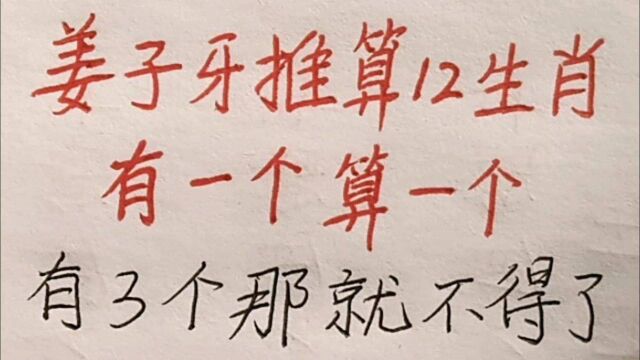 姜子牙推算12生肖
有一个算一个
有3个那就不得了